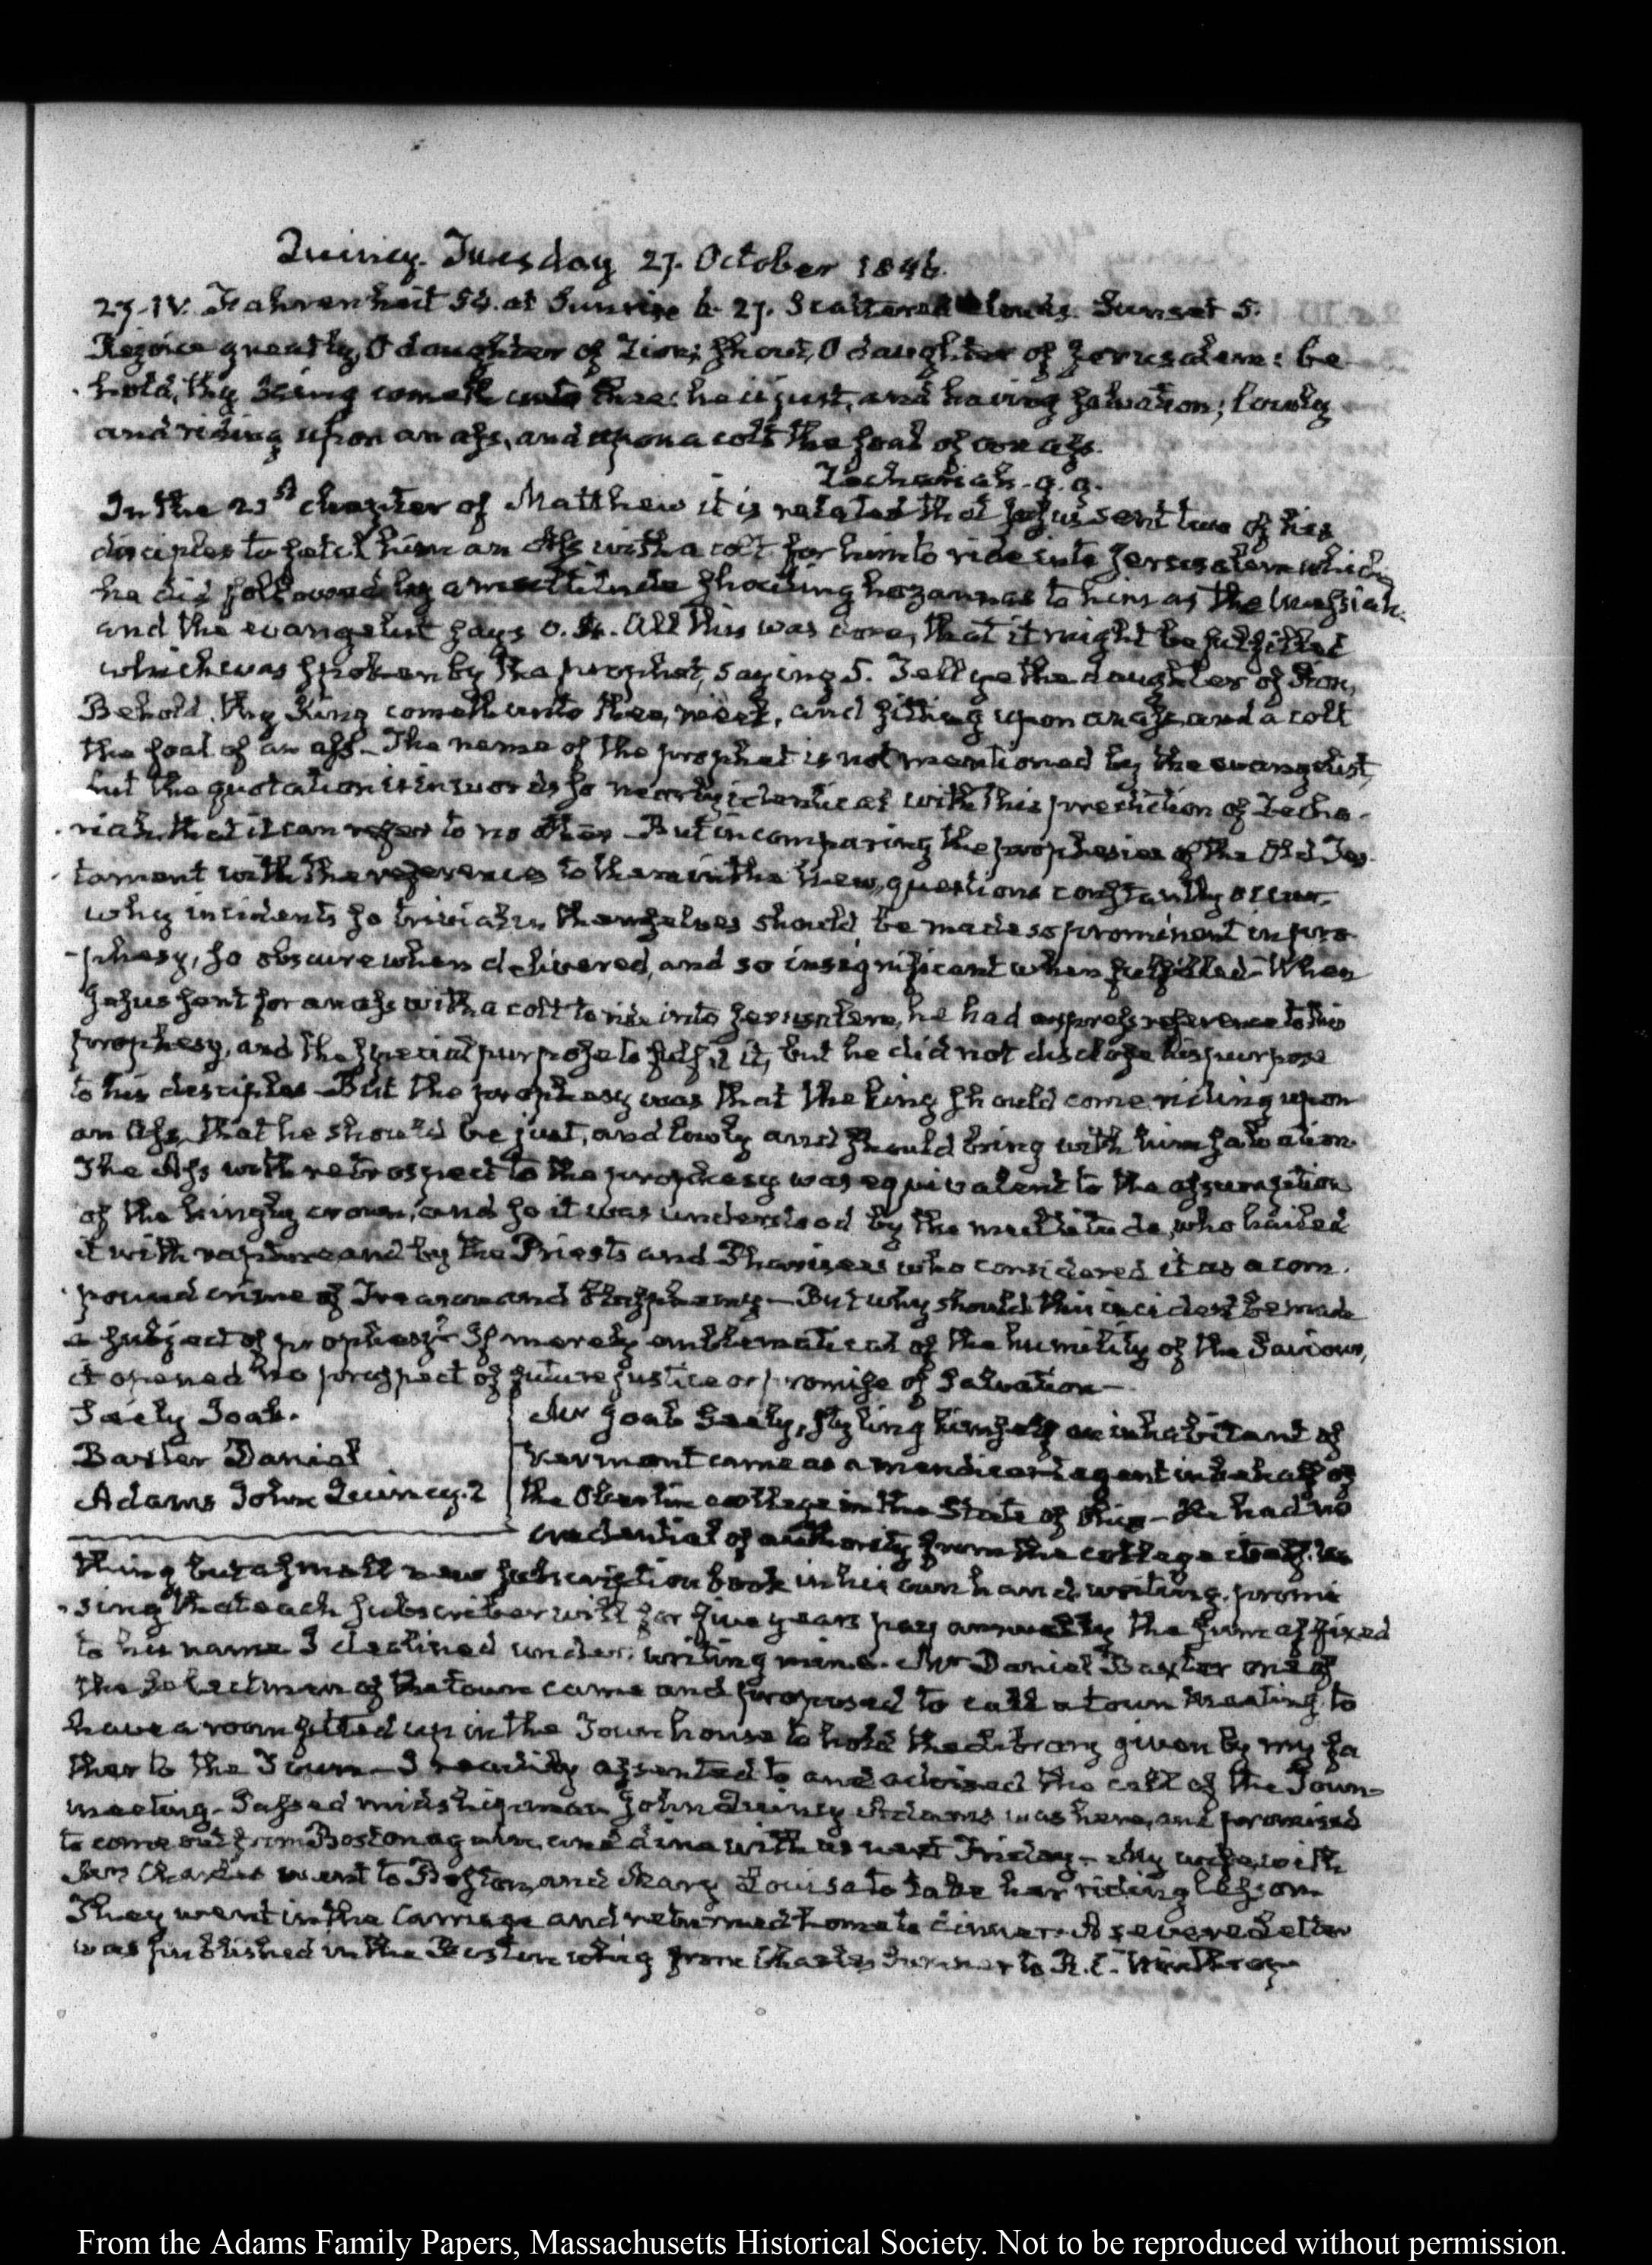 Quincy. Tuesday 27. October 1846.
27. IV. Fahrenheit 54. at Sunrise 6. 27. Scattered clouds. Sunset 5.
Rejoice greatly, O daughter of Zion; shout, O daughter of Jerusalem: be
hold, thy King cometh unto thee: he is just, and having salvation; lowly
and riding upon an ass, and upon a colt the foal of an ass.
Zechariah. 9. 9.
In the 21st chapter of Matthew it is related that Jesus sent two of his
disciples to fetch him an Ass with a colt for him to ride into Jerusalem which
he did followed by a multitude shouting hozannas to him as the Messiah.
and the evangelist says v. 4. All this was done, that it might be fulfilled
which was spoken by the prophet, saying 5. Tell ye the daughter of Sion,
Behold, thy King cometh unto thee, meek, and sitting upon an ass, and a colt
the foal of an ass. The name of the prophet is not mentioned by the evangelist,
but the quotation is in words so nearly identical with this prediction of Zecha-
riah, that it can refer to no other. But in comparing the prophesies of the Old Tes-
tament with the references to them in the New, questions constantly occur
why incidents so trivial in themselves should be made so prominent in pro-
phesy, so obscure when delivered, and so insignificant when fulfilled. When
Jesus sent for an ass with a colt to ride into Jerusalem, he had express reference to this
prophesy, and the special purpose to fulfil it, but he did not disclose his purpose
to his disciples. But the prophesy was that the king should come riding upon
an Ass, that he should be just, and lowly and should bring with him salvation.
The Ass with retrospect to the prophesy was equivalent to the assumption
of the kingly crown, and so it was understood by the multitude, who hailed
it with rapture and by the Priests and Pharisees who considered it as a com-
pound crime of Treason and blasphemy — But why should this incident be made
a subject of prophesy? If merely emblematical of the humility of the Saviour,
it opened no prospect of future justice or promise of Salvation —
Seely Joab.
Baxter Daniel
Adams John Quincy. 2
Mr Joab Seely, styling himself an inhabitant of
Vermont came as a mendicant agent in behalf of
the Oberlin college in the State of Ohio — He had no
credential of authority from the college itself. No
thing but a small new subscription book in his own hand writing. promi
sing that each subscriber will for five years pay annually the sum affixed
to his name I declined under-writing mine. Mr Daniel Baxter one of
the Selectmen of the town came and proposed to call a town meeting to
have a room fitted up in the Town house to hold the Library given by my fa
ther to the Town — I readily assented to and advised the call of the Town
meeting. Passed midshipman John Quincy Adams was here, and promised
to come out from Boston again, and dine with us next Friday — My wife, with
Mrs Charles went to Boston, and Mary Louisa to take her riding lesson.
They went in the Carriage and returned home to dinner. A severe Letter
was published in the Boston Whig from Charles Sumner to R. C. Winthrop